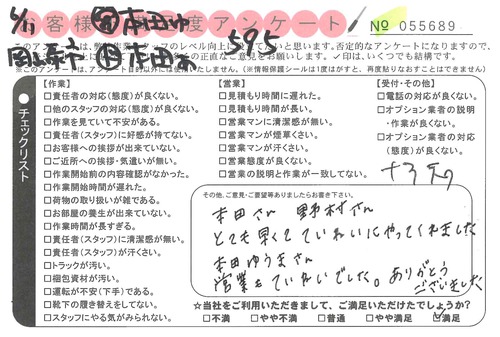 お客様満足度アンケート
6/11
№ 055689
595
※このアンケートは、アンケート目的以外には使用いたしません。(※情報保護シールは1度はがすと、再度貼りなおすことはできません)
チェックリスト
【作業】
□責任者の対応(態度)が良くない。
□他のスタッフの対応(態度)が良くない。
□作業を見ていて不安がある。
□責任者(スタッフ)に好感が持てない。
□お客様への挨拶が出来ていない。
□ご近所への挨拶・気遣いが無い。
□作業開始前の内容確認がなかった。
□作業開始時間が遅れた。
□荷物の取り扱いが雑である。
□お部屋の養生が出来ていない。
□作業時間が長すぎる。
□責任者(スタッフ)に清潔感が無い。
□責任者(スタッフ)が汗くさい。
□トラックが汚い。
□梱包資材が汚い。
□運転が不安(下手)である。
□靴下の履き替えをしてない。
□スタッフにやる気がみられない。
【営業】
□見積もり時間に遅れた。
□見積もり時間が長い。
□営業マンに清潔感が無い。
□営業マンが煙草くさい。
□営業マンが汗くさい。
□営業態度が良くない。
□営業の説明と作業が一致してない。
【受付・その他】
□電話の対応が良くない。
□オプション業者の説明
・作業が良くない。
□オプション業者の対応
(態度)が良くない。
その他、ご意見・ご要望等ありましたらお書き下さい。
本田さん 野村さん
とても早くていねいにやってくれました
本田ゆうまさん
営業もていねいでした。ありがとう
ございました
☆当社をご利用いただきまして、ご満足いただけたでしょうか?
□不満 □やや不満 □普通 □やや満足 ☑満足